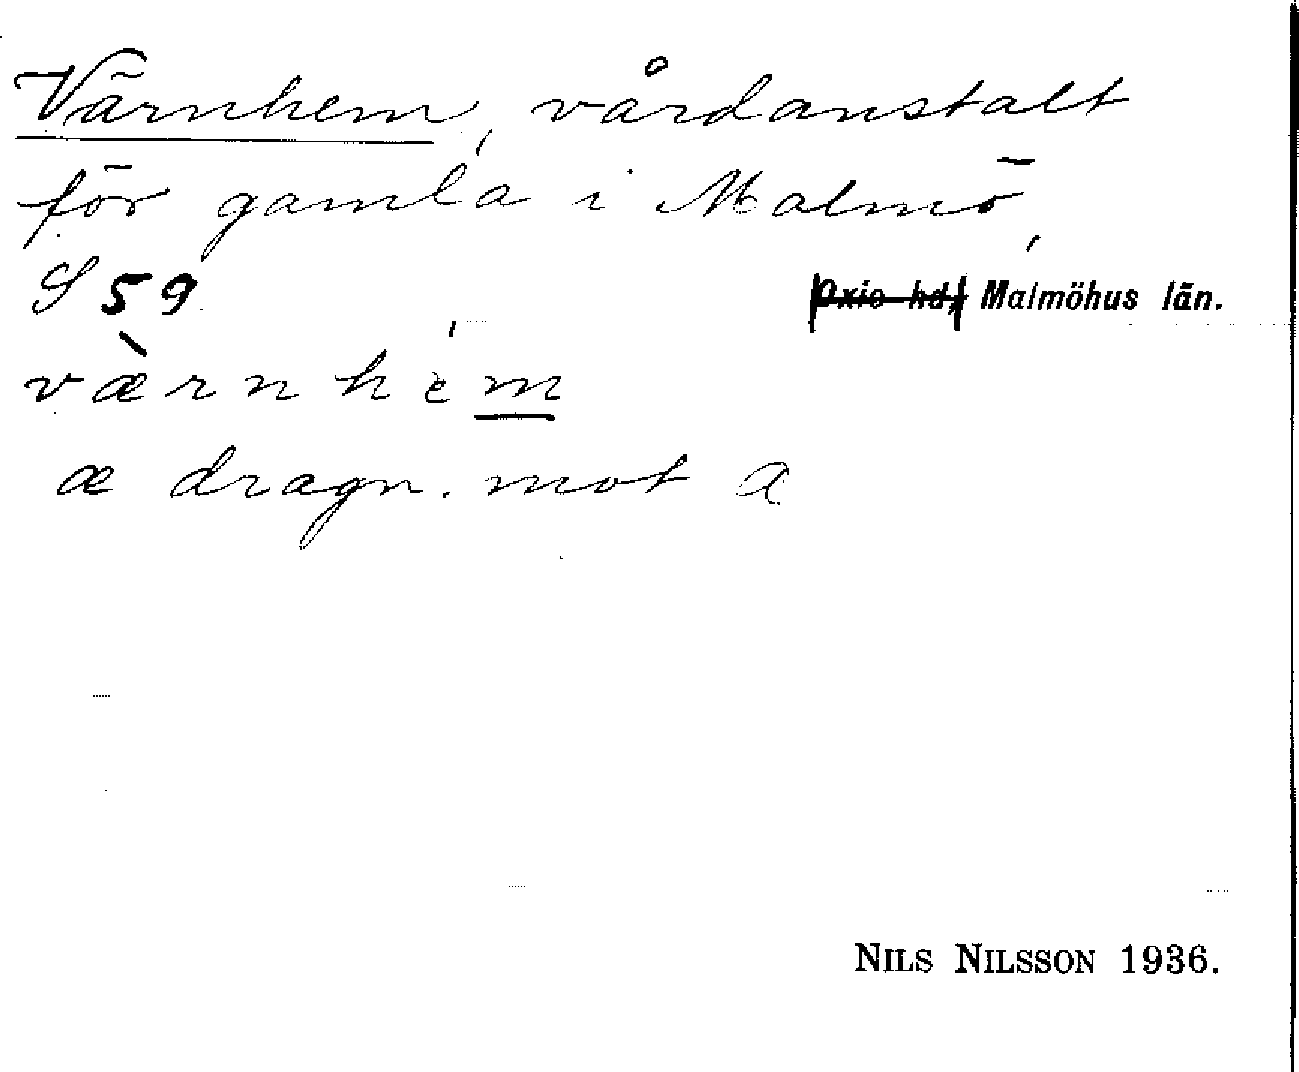 Värnhem, vårdanstalt
för gamla i Malmö,
S 59 Oxie hd, Malmöhus län.
væ̀rnhém
æ dragn. mot a
NILS NILSSON 1936.